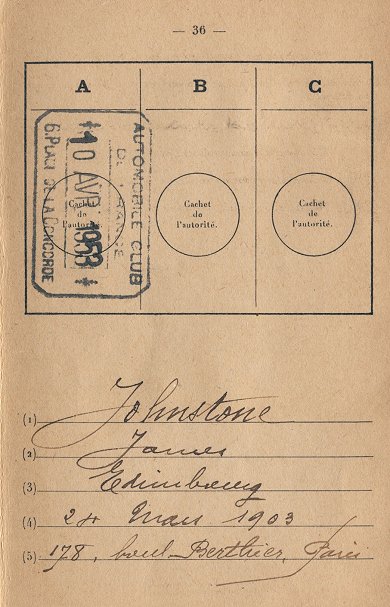 — 36 —
A B C
AUTOMOBILE CLUB
DE FRANCE
10 AVR 1953
6. PLACE DE LA CONCORDE
Cachet
de
l'autorité.
Cachet
de
l'autorité.
Cachet
de
l'autorité.
(1) Johnstone
(2) James
(3) Edimbourg
(4) 24 Mars 1903
(5) 178, boul. Berthier, Paris